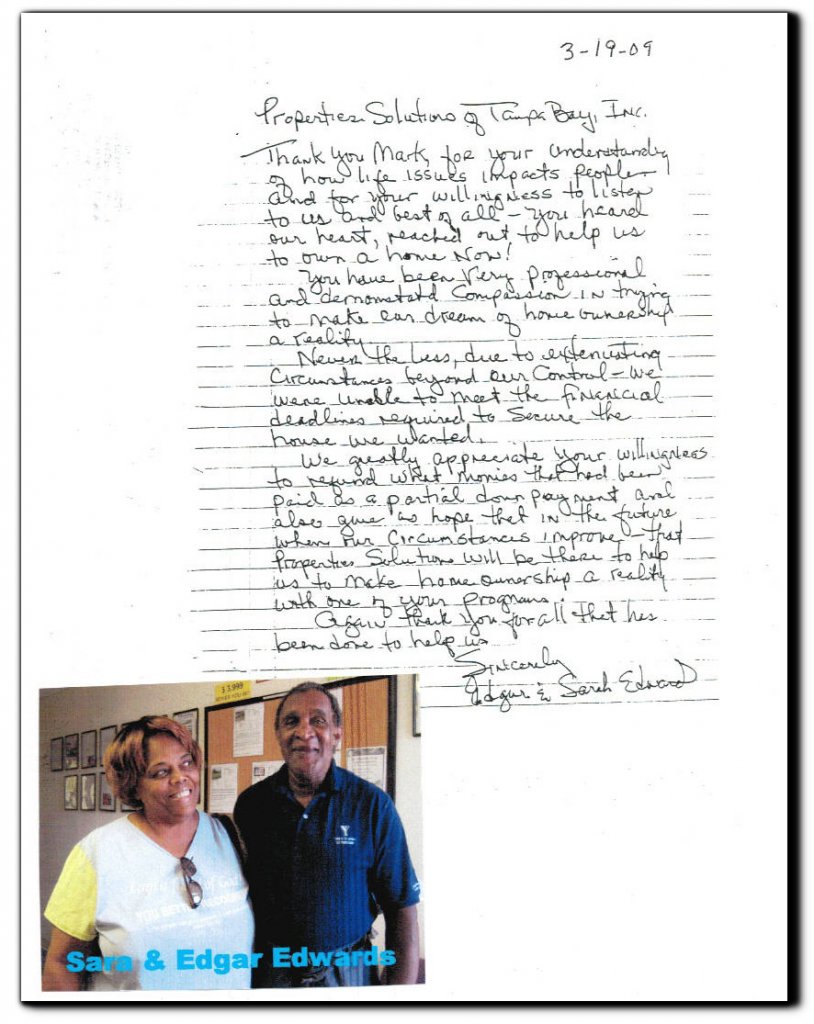 3-19-09
Properties Solutions of Tampa Bay, Inc.
Thank you Mark, for your understanding
of how life issues impacts people
and for your willingness to listen
to us and best of all - you heard
our heart, reached out to help us
to own a home Now!
You have been very professional
and demonstatd compassion in trying
to make our dream of home ownership
a reality.
Never the less, due to extenuating
Circumstances beyond our Control - we
were unable to meet the financial
deadlines required to secure the
house we wanted.
We greatly appreciate your willingness
to refund what monies that had been
paid as a partial down payment and
also give us hope that in the future
when our circumstances improve - that
Properties Solutions will be there to help
us to make home ownership a reality
with one of your programs.
Again thank you for all that has
been done to help us
Sincerely
Edgar & Sarah Edward
$3,999
YOU
Sara & Edgar Edwards